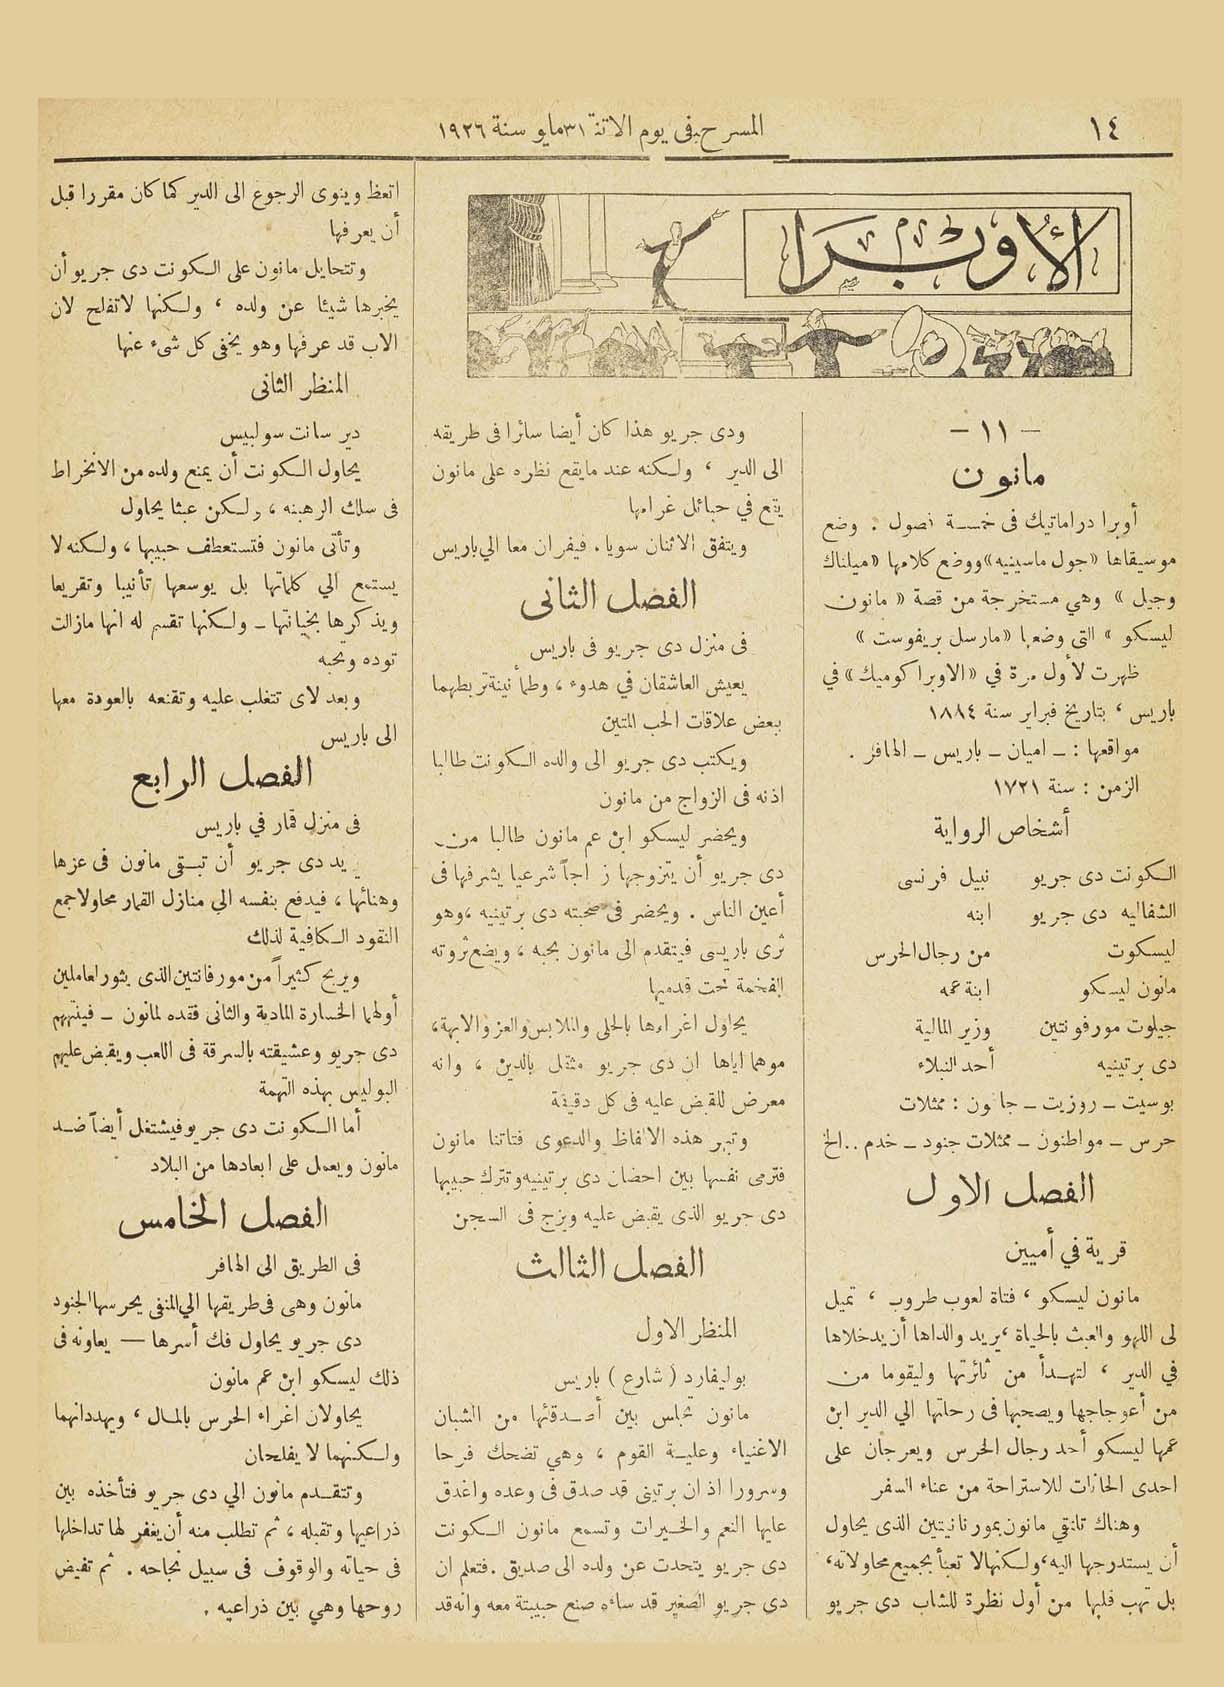 ١٤
المسرح في يوم الاثنين ٣١ مايو سنة ١٩٢٦
الأوبرا
— ١١ —
مانون
أوبرا دراماتيك فى خمسة فصول . وضع
موسيقاها «جول ماسينيه» ووضع كلامها «ميلناك
وجيل » وهي مستخرجة من قصة « مانون
ليسكو » التى وضعها «مارسل بريفوست »
ظهرت لأول مرة في «الاوبرا كوميك» في
باريس ، بتاريخ فبراير سنة ١٨٨٤
مواقعها : ـ اميان ـ باريس ـ الهافر .
الزمن : سنة ١٧٢١
أشخاص الرواية
الكونت دى جريو نبيل فرنسى
الشفاليه دى جريو ابنه
ليسكوت من رجال الحرس
مانون ليسكو ابنة عمه
جيلوت مورفونتين وزير المالية
دى برتينيه أحد النبلاء
بوسيت ـ روزيت ـ جانون : ممثلات
حرس ـ مواطنون ـ ممثلات جنود ـ خدم ..الخ
الفصل الاول
قرية في أميين
مانون ليسكو ، فتاة لعوب طروب ، تميل
لى اللهو والعبث بالحياة ،يريد والداها أن يدخلاها
في الدير ، لتهدأ من ثائرتها وليقوما من
من أعوجاجها ويصحبها فى رحلتها الي الدير ابن
عمها ليسكو أحد رجال الحرس ويعرجان على
احدى الحانات للاستراحة من عناء السفر
وهناك تلتقي مانون بمورنانيتين الذى يحاول
أن يستدرجها اليه،ولكنها لا تعبأ بجميع محاولاته،
بل تهب قلبها من أول نظرة للشاب دى جريو
ودى جريو هذا كان أيضا سائرا فى طريقه
الى الدير ، ولكنه عند مايقع نظره على مانون
يقع في حبائل غرامها
ويتفق الاثنان سويا. فيفران معا الي باريس
الفصل الثانى
فى منزل دى جريو فى باريس
يعيش العاشقان في هدوء ، وطمأنينة تربطهما
ببعض علاقات الحب المتين
ويكتب دى جريو الى والده الكونت طالبا
اذنه فى الزواج من مانون
ويحضر ليسكو ابن عم مانون طالبا من
دى جريو أن يتزوجها زواجاً شرعيا يشرفها فى
أعين الناس . ويحضر فى صحبته دى برتينيه ،وهو
ثرى باريسى فيتقدم الى مانون بحبه ، ويضع ثروته
الفخمة تحت قدميها
يحاول اغراءها بالحلى والملابس والعز والابهة،
موهما اياها ان دى جريو مثقل بالدين ، وانه
معرض للقبض عليه فى كل دقيقة
وتبهر هذه الالفاظ والدعوى فتاتنا مانون
فترمى نفسها بين احضان دى برتينيه وتترك حبيبها
دى جريو الذى يقبض عليه ويزج فى السجن
الفصل الثالث
المنظر الاول
بوليفارد ( شارع ) باريس
مانون تجلس بين أصدقائها من الشبان
الاغنياء وعلية القوم ، وهي تضحك فرحا
وسرورا اذ ان برتينى قد صدق فى وعده واغدق
عليها النعم والخيرات وتسمع مانون الكونت
دى جريو يتحدث عن ولده الى صديق .فتعلم ان
دى جريو الصغير قد ساءه صنع حبيبتة معه وانه قد
اتعظ وينوى الرجوع الى الدير كما كان مقررا قبل
أن يعرفها
وتتحايل مانون على الكونت دى جريو أن
يخبرها شيئا عن ولده ، ولكنها لاتفلح لان
الاب قد عرفها وهو يخفى كل شىء عنها
المنظر الثانى
دير سانت سولبيس
يحاول الكونت أن يمنع ولده من الانخراط
فى سلك الرهبنه ، ولكن عبثا يحاول
وتأتى مانون فتستعطف حبيبها ، ولكنه لا
يستمع الي كلماتها بل يوسعها تأنيبا وتقريعا
ويذكرها بخيانتها ـ ولكنها تقسم له انها مازالت
توده وتحبه
وبعد لاى تتغلب عليه وتقنعه بالعودة معها
الى باريس
الفصل الرابع
فى منزل قمار في باريس
يريد دى جريو أن تبقى مانون فى عزها
وهنائها ، فيدفع بنفسه الي منازل القمار محاولا جمع
النقود الكافية لذلك
ويربح كثيراً من مورفانتين الذى يثور لعاملين
أولهما الخسارة المادية والثانى فقده لمانون ـ فيتهم
دى جريو وعشيقته بالسرقة فى اللعب ويقبض عليهم
البوليس بهذه التهمة
أما الكونت دى جريو فيشتغل أيضاً ضد
مانون ويعمل على ابعادها من البلاد
الفصل الخامس
فى الطريق الى الهافر
مانون وهى فى طريقها الي المنفى يحرسها الجنود
دى جريو يحاول فك أسرها — يعاونه فى
ذلك ليسكو ابن عم مانون
يحاولان اغراء الحرس بالمال ، ويهددانهما
ولكنهما لا يفلحان
وتتقدم مانون الي دى جريو فتأخذه بين
ذراعيها وتقبله ، ثم تطلب منه أن يغفر لها تداخلها
فى حياته والوقوف فى سبيل نجاحه . ثم تفيض
روحها وهي بين ذراعيه .